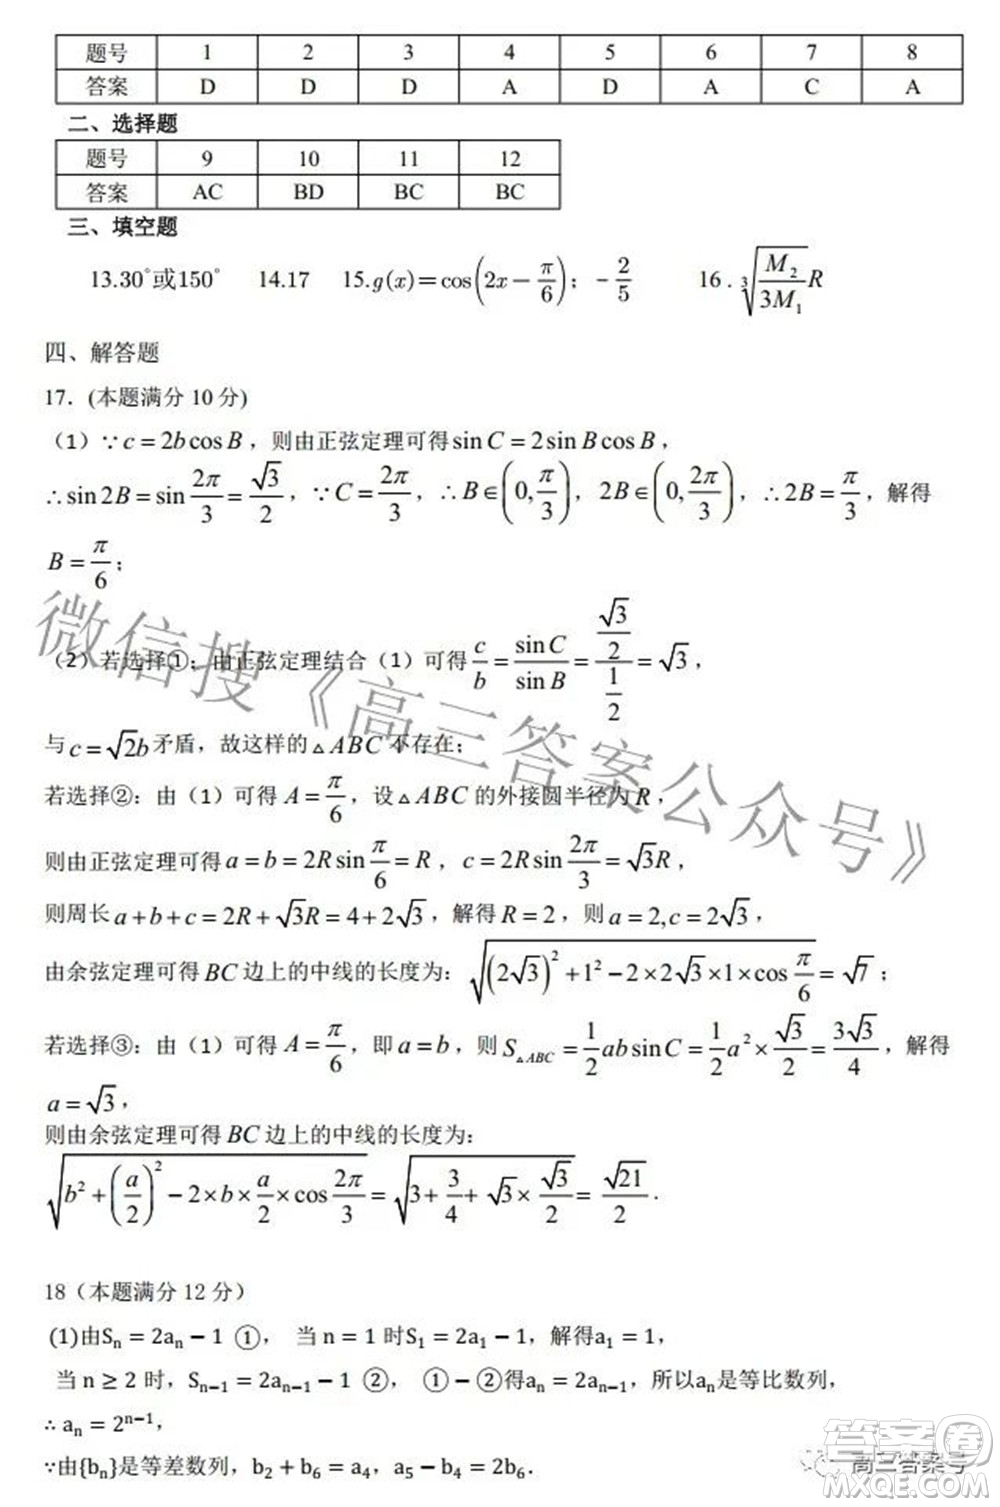 题号 1 2 3 4 5 6 7 8
答案 D D D A D A C A
二、选择题
题号 9 10 11 12
答案 AC BD BC BC
三、填空题
13.30°或150° 14.17 15.g(x)=cos(2x−π/6)；−2/5 16.∛(M₂/3M₁)R
四、解答题
17．(本题满分 10 分)
（1）∵c=2bcosB，则由正弦定理可得sinC=2sinBcosB，
∴sin2B=sin2π/3=√3/2，∵C=2π/3，∴B∈(0,π/3)，2B∈(0,2π/3)，∴2B=π/3，解得
B=π/6；
（2）若选择①：由正弦定理结合（1）可得c/b=sinC/sinB=(√3/2)/(1/2)=√3，
与c=√2b矛盾，故这样的△ABC不存在；
若选择②：由（1）可得A=π/6，设△ABC的外接圆半径为R，
则由正弦定理可得a=b=2Rsinπ/6=R，c=2Rsin2π/3=√3R，
则周长a+b+c=2R+√3R=4+2√3，解得R=2，则a=2,c=2√3，
由余弦定理可得BC边上的中线的长度为：√((2√3)²+1²−2×2√3×1×cosπ/6)=√7；
若选择③：由（1）可得A=π/6，即a=b，则S△ABC=1/2absinC=1/2a²×√3/2=3√3/4，解得
a=√3，
则由余弦定理可得BC边上的中线的长度为：
√(b²+(a/2)²−2×b×a/2×cos2π/3)=√(3+3/4+√3×√3/2)=√21/2．
18（本题满分 12 分）
(1)由Sₙ=2aₙ−1 ①， 当 n=1 时S₁=2a₁−1，解得a₁=1，
当 n≥2 时，Sₙ₋₁=2aₙ₋₁−1 ②， ①−②得aₙ=2aₙ₋₁，所以aₙ是等比数列，
∴ aₙ=2ⁿ⁻¹，
∵由{bₙ}是等差数列，b₂+b₆=a₄，a₅−b₄=2b₆．
微信搜《高三答案公众号》
高三答案号
答案卷